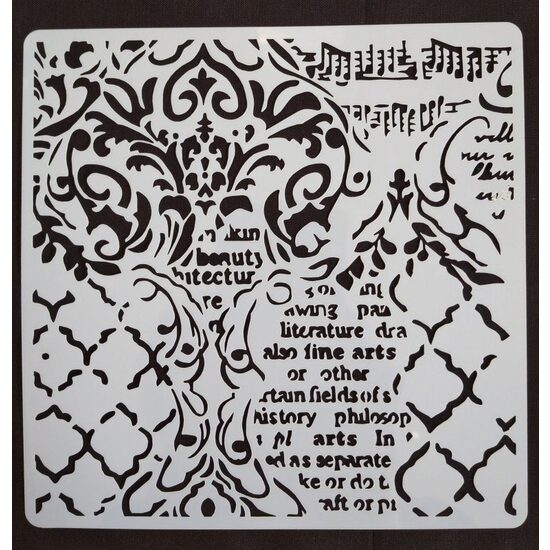 will
kin
beauty
hitectur
re
awing pai
literature dra
also fine arts
or other
rtain fields of s
history philosop
pl arts In
ed as separate
ke or do t
aft or pi